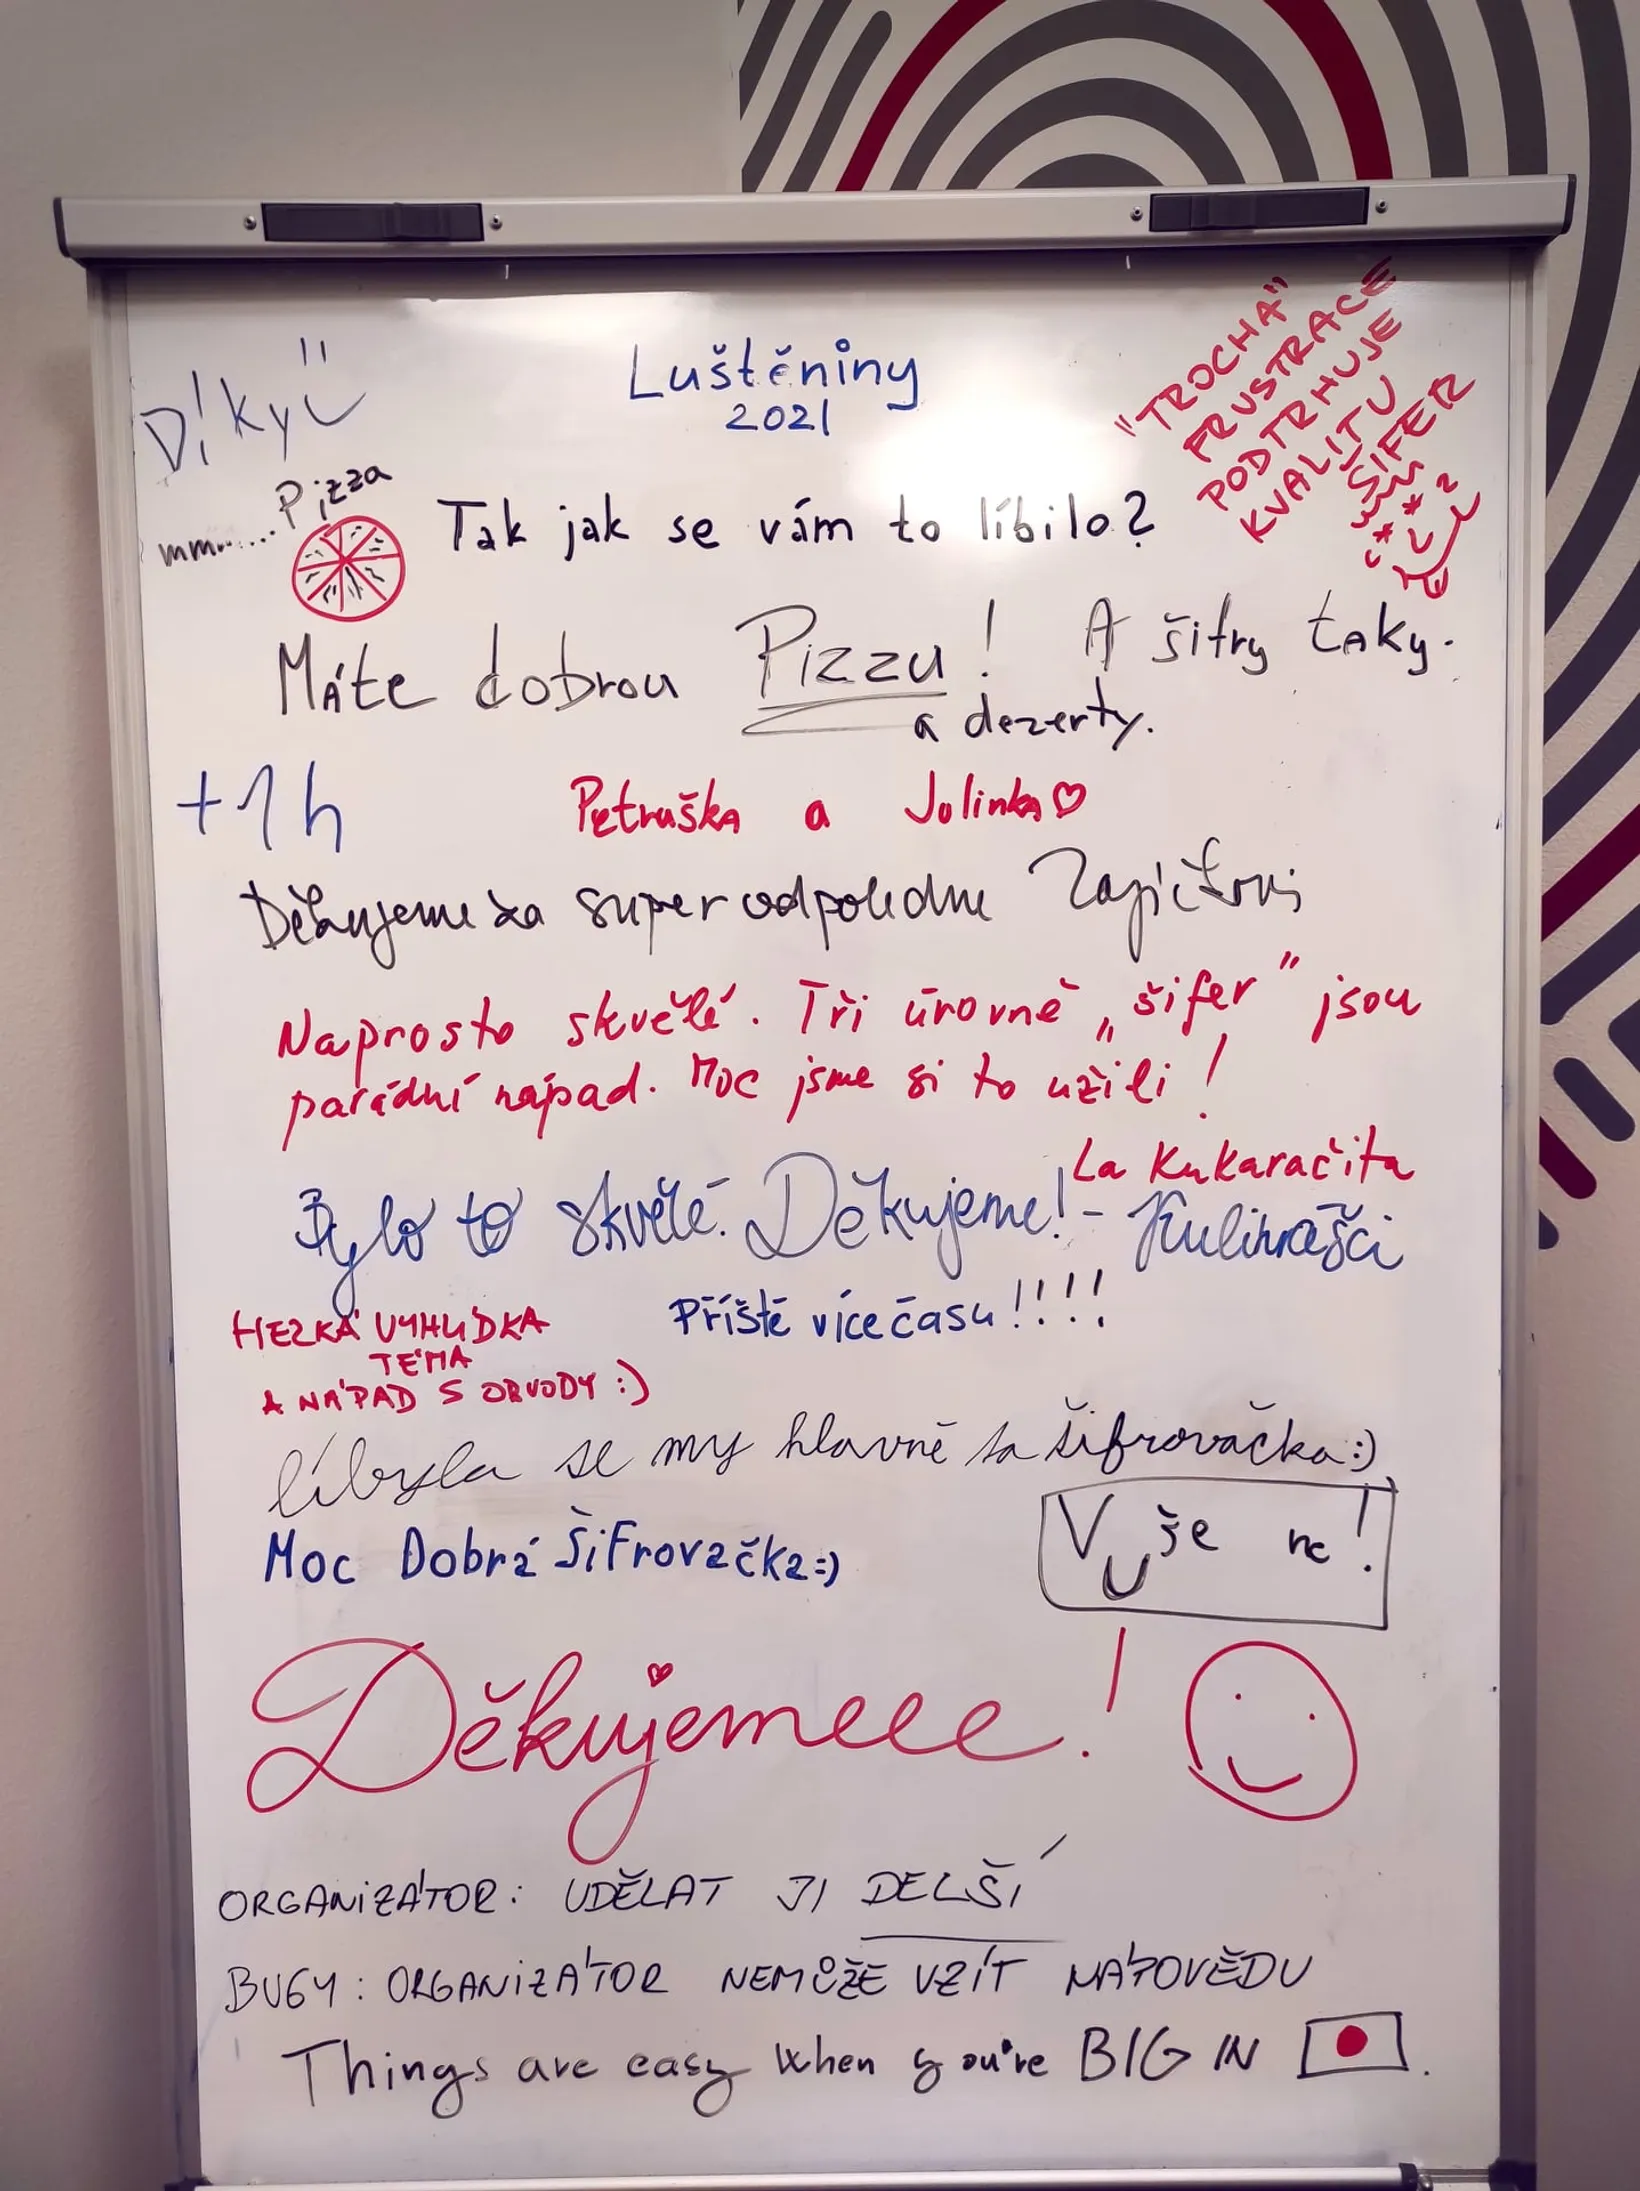 Luštěniny
2021
Díky
mm......Pizza
"TROCHA"
FRUSTRACE
PODTRHUJE
KVALITU
ŠIFER
Tak jak se vám to líbilo?
Máte dobrou Pizzu! A šifry taky.
a dezerty.
+1h
Petruška a Jolinka♡
Děkujeme za super odpoledne
Naprosto skvělé. Tři úrovně „šifer" jsou
parádní nápad. Moc jsme si to užili!
La Kukaračita
Bylo to skvělé. Děkujeme! - Kulihrášci
HEZKÁ VYHLÍDKA
TÉMA
A NÁPAD S OBVODY :)
Příště více času!!!!!
líbyla se my hlavně ta šifrovačka:)
Moc Dobrá ŠiFrovačka=)
Děkujemeee!
ORGANIZÁTOR: UDĚLAT JI DELŠÍ
BUGY: ORGANIZÁTOR NEMŮŽE VZÍT NÁPOVĚDU
Things are easy when you're BIG IN